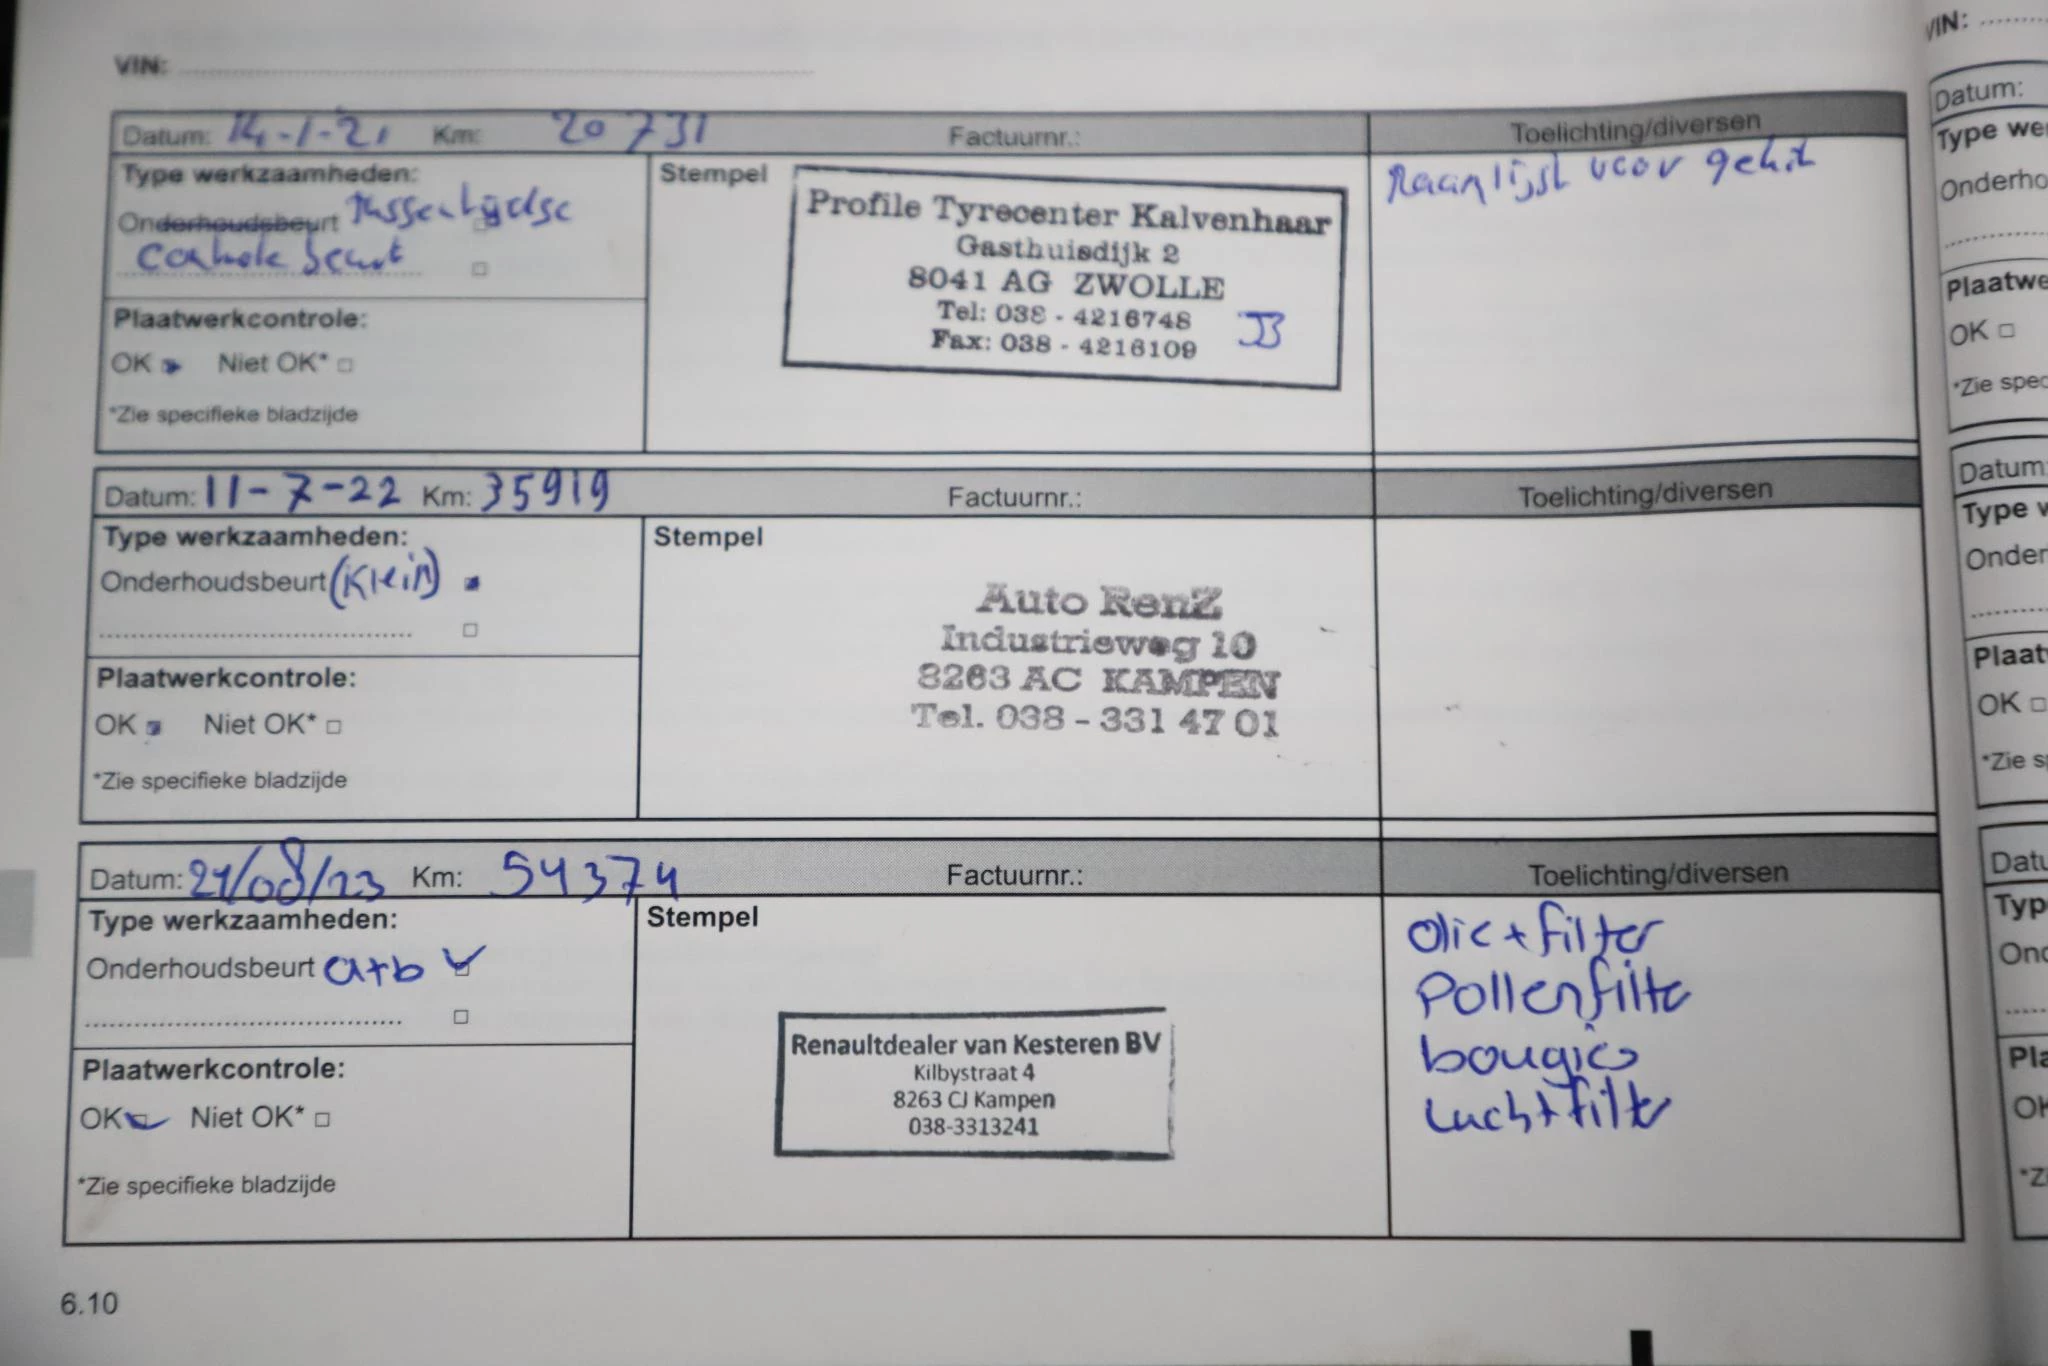 VIN:
Datum: 14-1-21 Km: 20 731 Factuurnr.: Toelichting/diversen
Type werkzaamheden: Stempel
Onderhoudsbeurt tussentijdse
controle beurt
Profile Tyrecenter Kalvenhaar
Gasthuisdijk 2
8041 AG ZWOLLE
Tel: 038 - 4216748
Fax: 038 - 4216109
JB
Raamlijst voor gekit
Plaatwerkcontrole:
OK Niet OK*
*Zie specifieke bladzijde
Datum: 11-7-22 Km: 35919 Factuurnr.: Toelichting/diversen
Type werkzaamheden: Stempel
Onderhoudsbeurt (Klein)
Auto RenZ
Industrieweg 10
8263 AC KAMPEN
Tel. 038 - 331 47 01
Plaatwerkcontrole:
OK Niet OK*
*Zie specifieke bladzijde
Datum: 21/08/23 Km: 54374 Factuurnr.: Toelichting/diversen
Type werkzaamheden: Stempel
Onderhoudsbeurt a+b
Renaultdealer van Kesteren BV
Kilbystraat 4
8263 CJ Kampen
038-3313241
olie + filter
Pollenfilter
bougies
Luchtfilter
Plaatwerkcontrole:
OK Niet OK*
*Zie specifieke bladzijde
6.10
VIN:
Datum:
Type
OK
Datum:
Type
OK